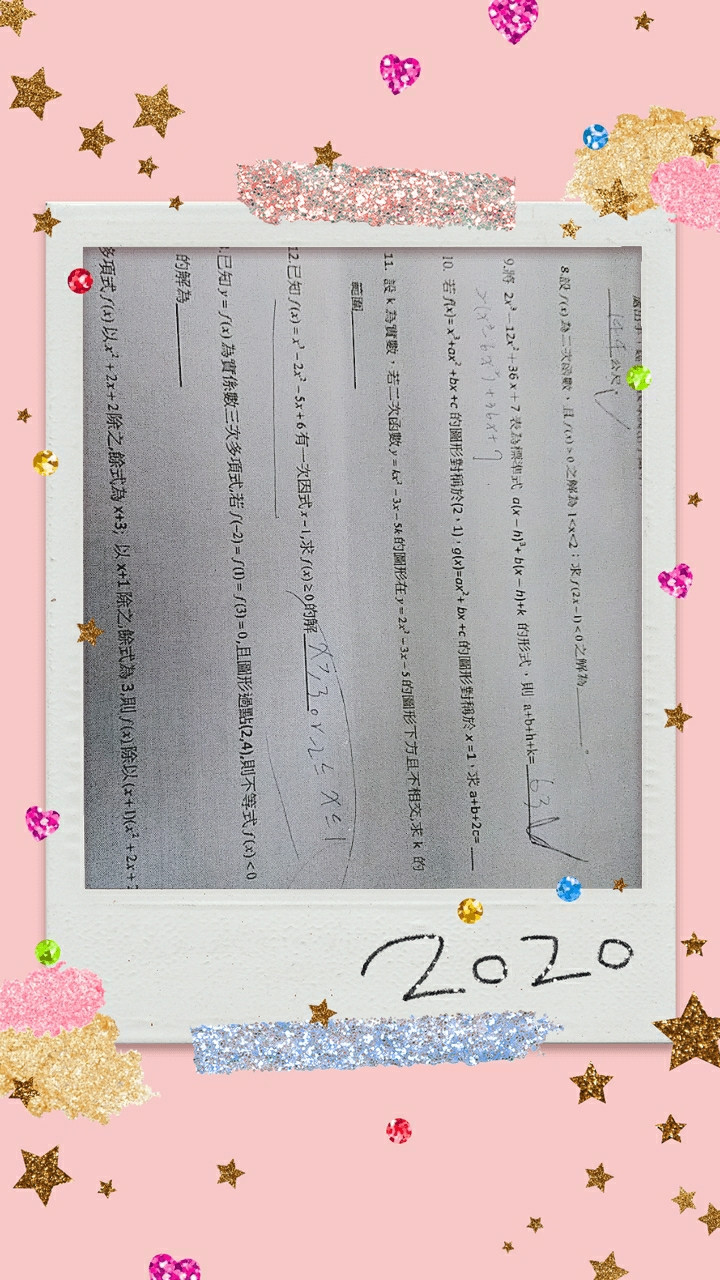 14.4 公尺。
8.設 f(x) 為二次函數，且 f(x)>0 之解為 1<x<2；求 f(2x-1)<0 之解為______。
9.將 2x³-12x²+36x+7 表為標準式 a(x-h)³+b(x-h)+k 的形式，則 a+b+h+k= 63
+36x+7
10. 若 f(x)=x³+ax²+bx+c 的圖形對稱於(2，1)，g(x)=ax²+bx+c 的圖形對稱於 x=1，求 a+b+2c=___
11. 設 k 為實數，若二次函數 y=kx²-3x-5k 的圖形在 y=2x²-3x-5 的圖形下方且不相交,求 k 的
範圍______
12.已知 f(x)=x³-2x²-5x+6 有一次因式 x-1,求 f(x)≥0 的解
x≥3 or -2≤x≤1
.已知 y=f(x) 為實係數三次多項式,若 f(-2)=f(1)=f(3)=0,且圖形過點(2,4),則不等式 f(x)<0
的解為______
多項式 f(x) 以 x²+2x+2 除之,餘式為 x+3; 以 x+1 除之,餘式為 3,則 f(x) 除以 (x+1)(x²+2x+2
2020